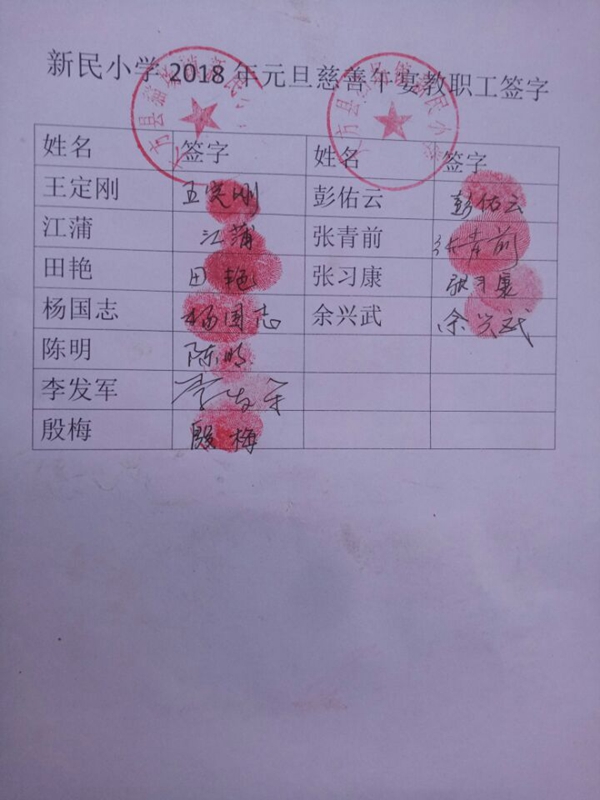 新民小学 2018 年元旦慈善午宴教职工签字
姓名 签字 姓名 签字
王定刚 王定刚 彭佑云 彭佑云
江蒲 江蒲 张青前 张青前
田艳 田艳 张习康 张习康
杨国志 杨国志 余兴武 余兴武
陈明 陈明
李发军 李发军
殷梅 殷梅